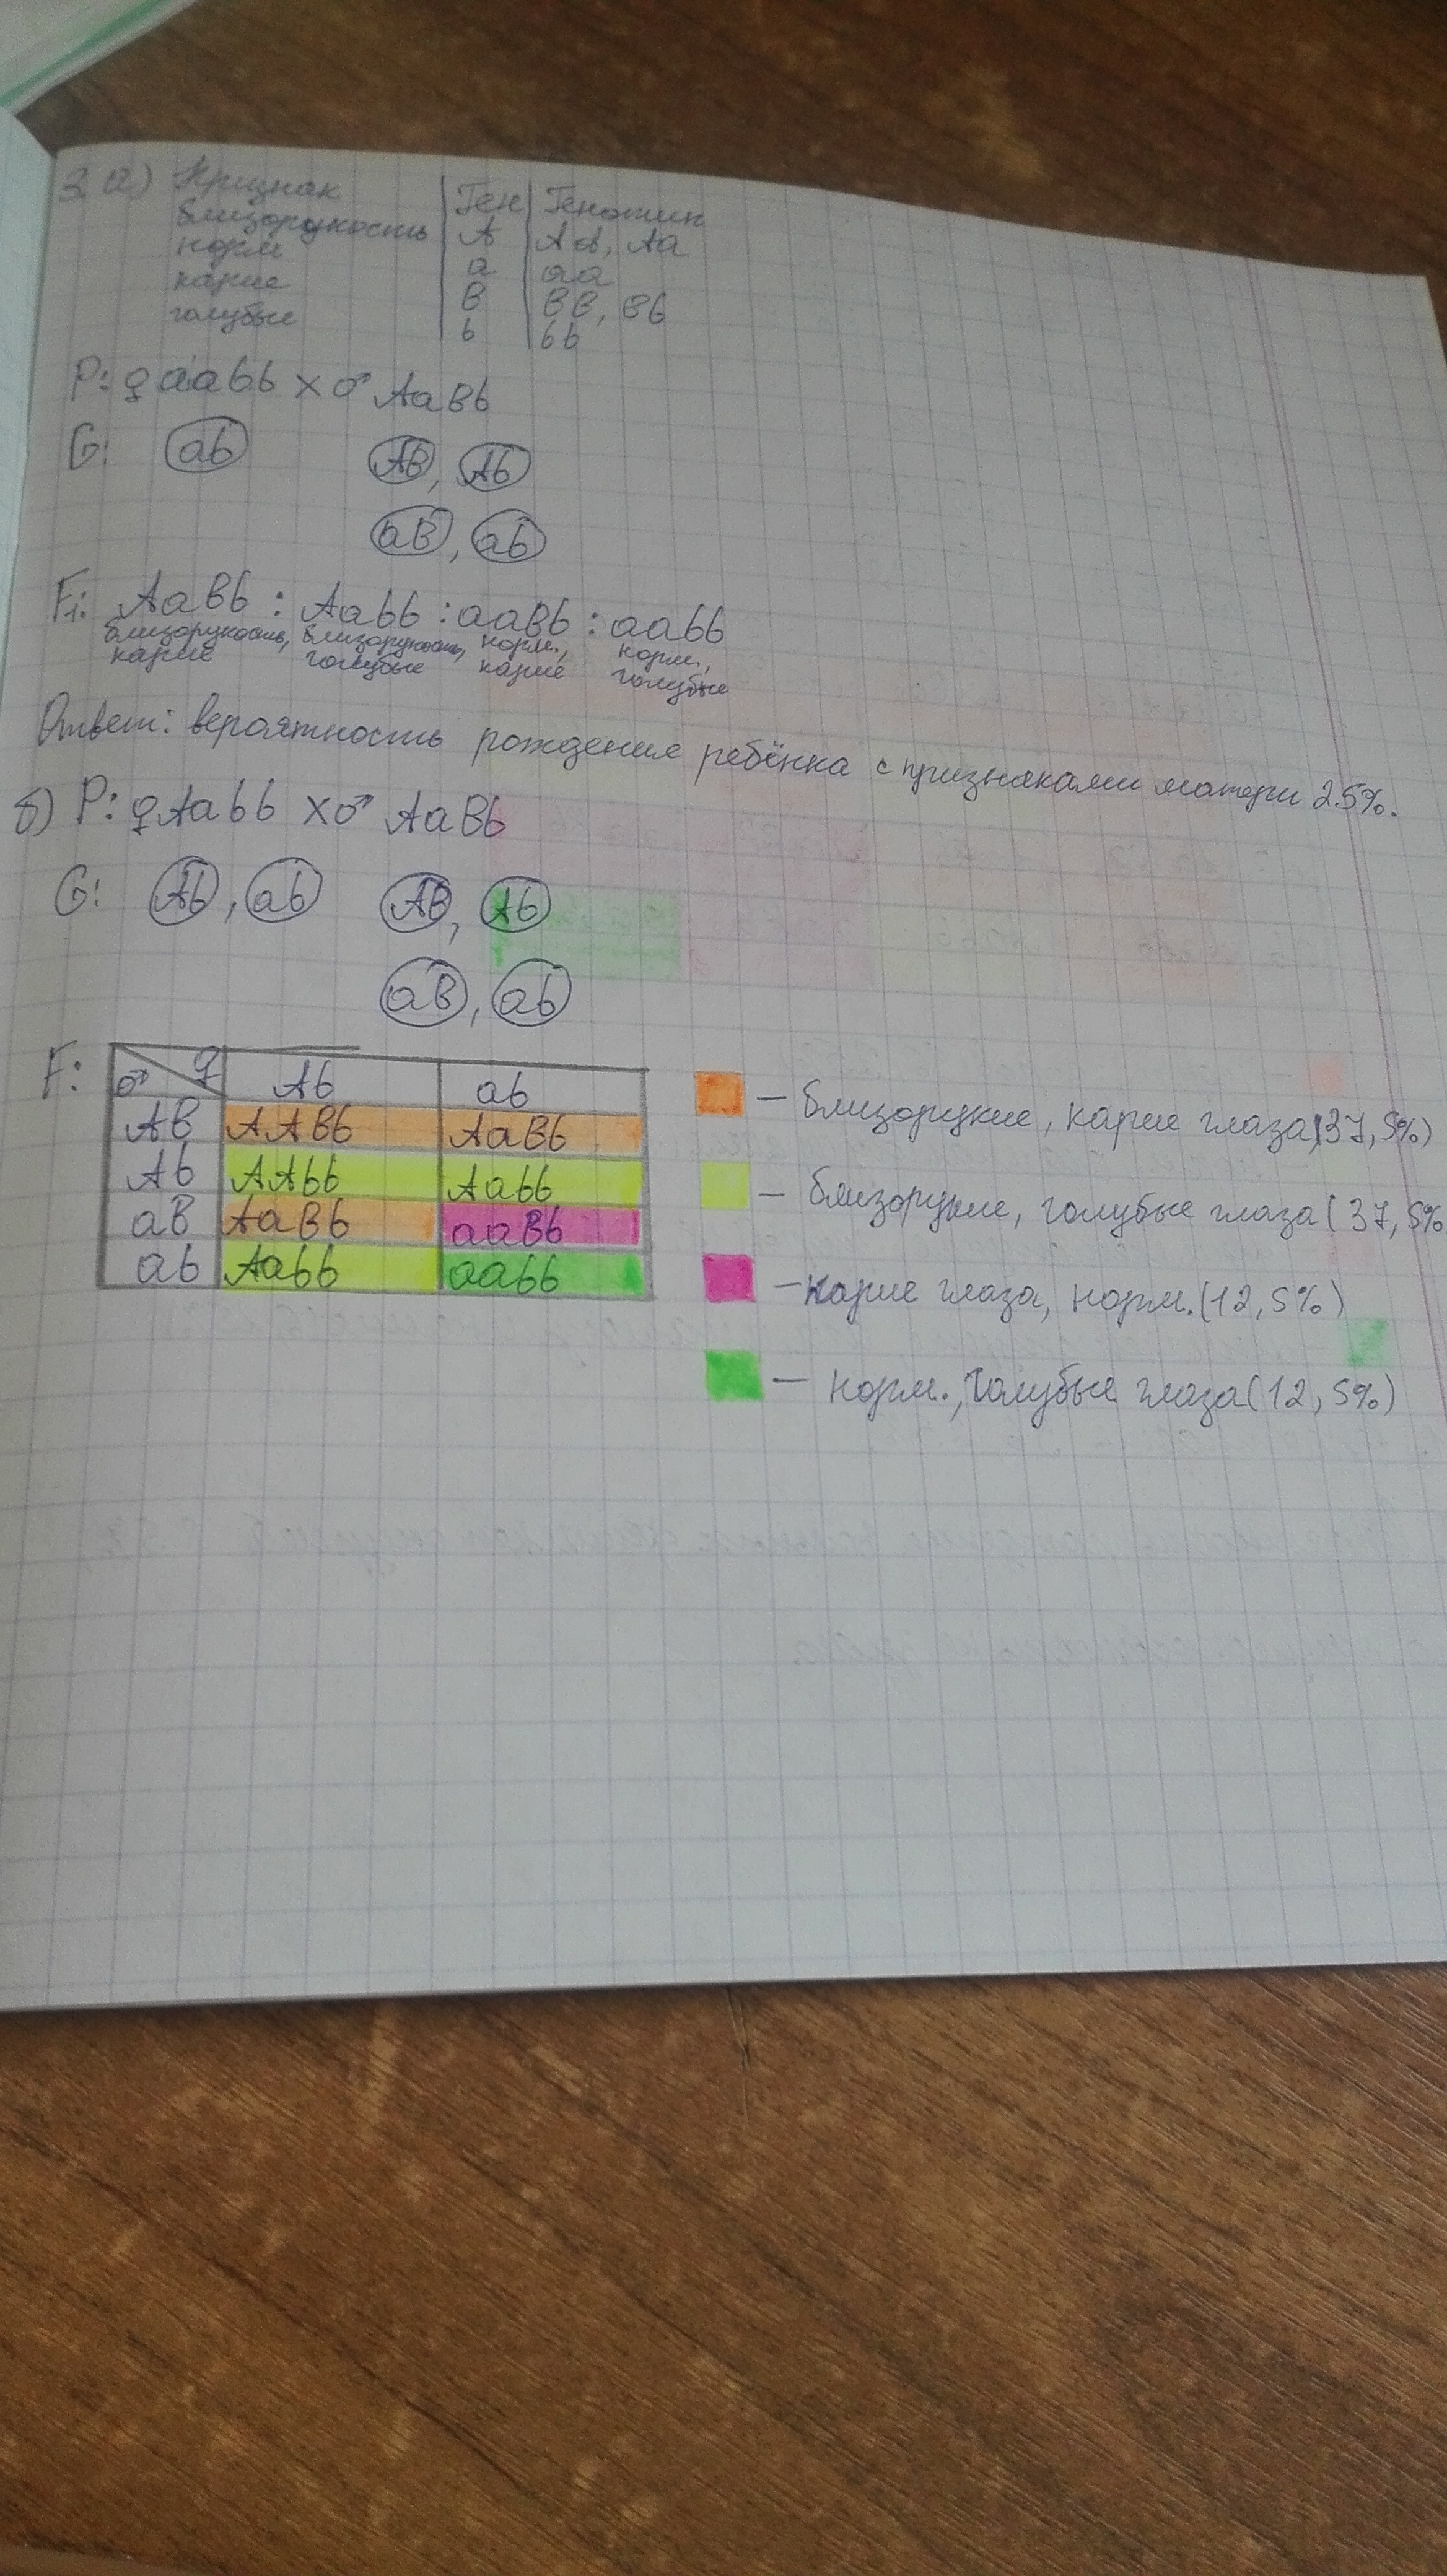 3. а) Признак | Ген | Генотип
близорукость | A | AA, Aa
норм | a | aa
карие | B | BB, Bb
голубые | b | bb
P: ♀ aabb × ♂ AaBb
G: ab AB, Ab
aB, ab
F₁: AaBb : Aabb : aaBb : aabb
близорукость, близорукость, норм., норм.,
карие голубые карие голубые
Ответ: вероятность рождения ребёнка с признаками матери 25%.
б) P: ♀ Aabb × ♂ AaBb
G: Ab, ab AB, Ab
aB, ab
F: ♂ ♀ Ab ab
AB AABb AaBb
Ab AAbb Aabb
aB AaBb aaBb
ab Aabb aabb
— близорукие, карие глаза (37,5%)
— близорукие, голубые глаза (37,5%
— карие глаза, норм. (12,5%)
— норм., голубые глаза (12,5%)